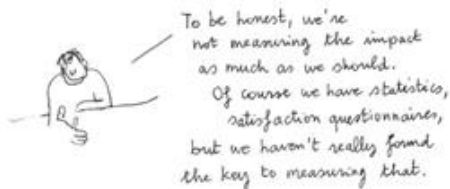 To be honest, we're
not measuring the impact
as much as we should.
Of course we have statistics,
satisfaction questionnaires,
but we haven't really found
the key to measuring that.